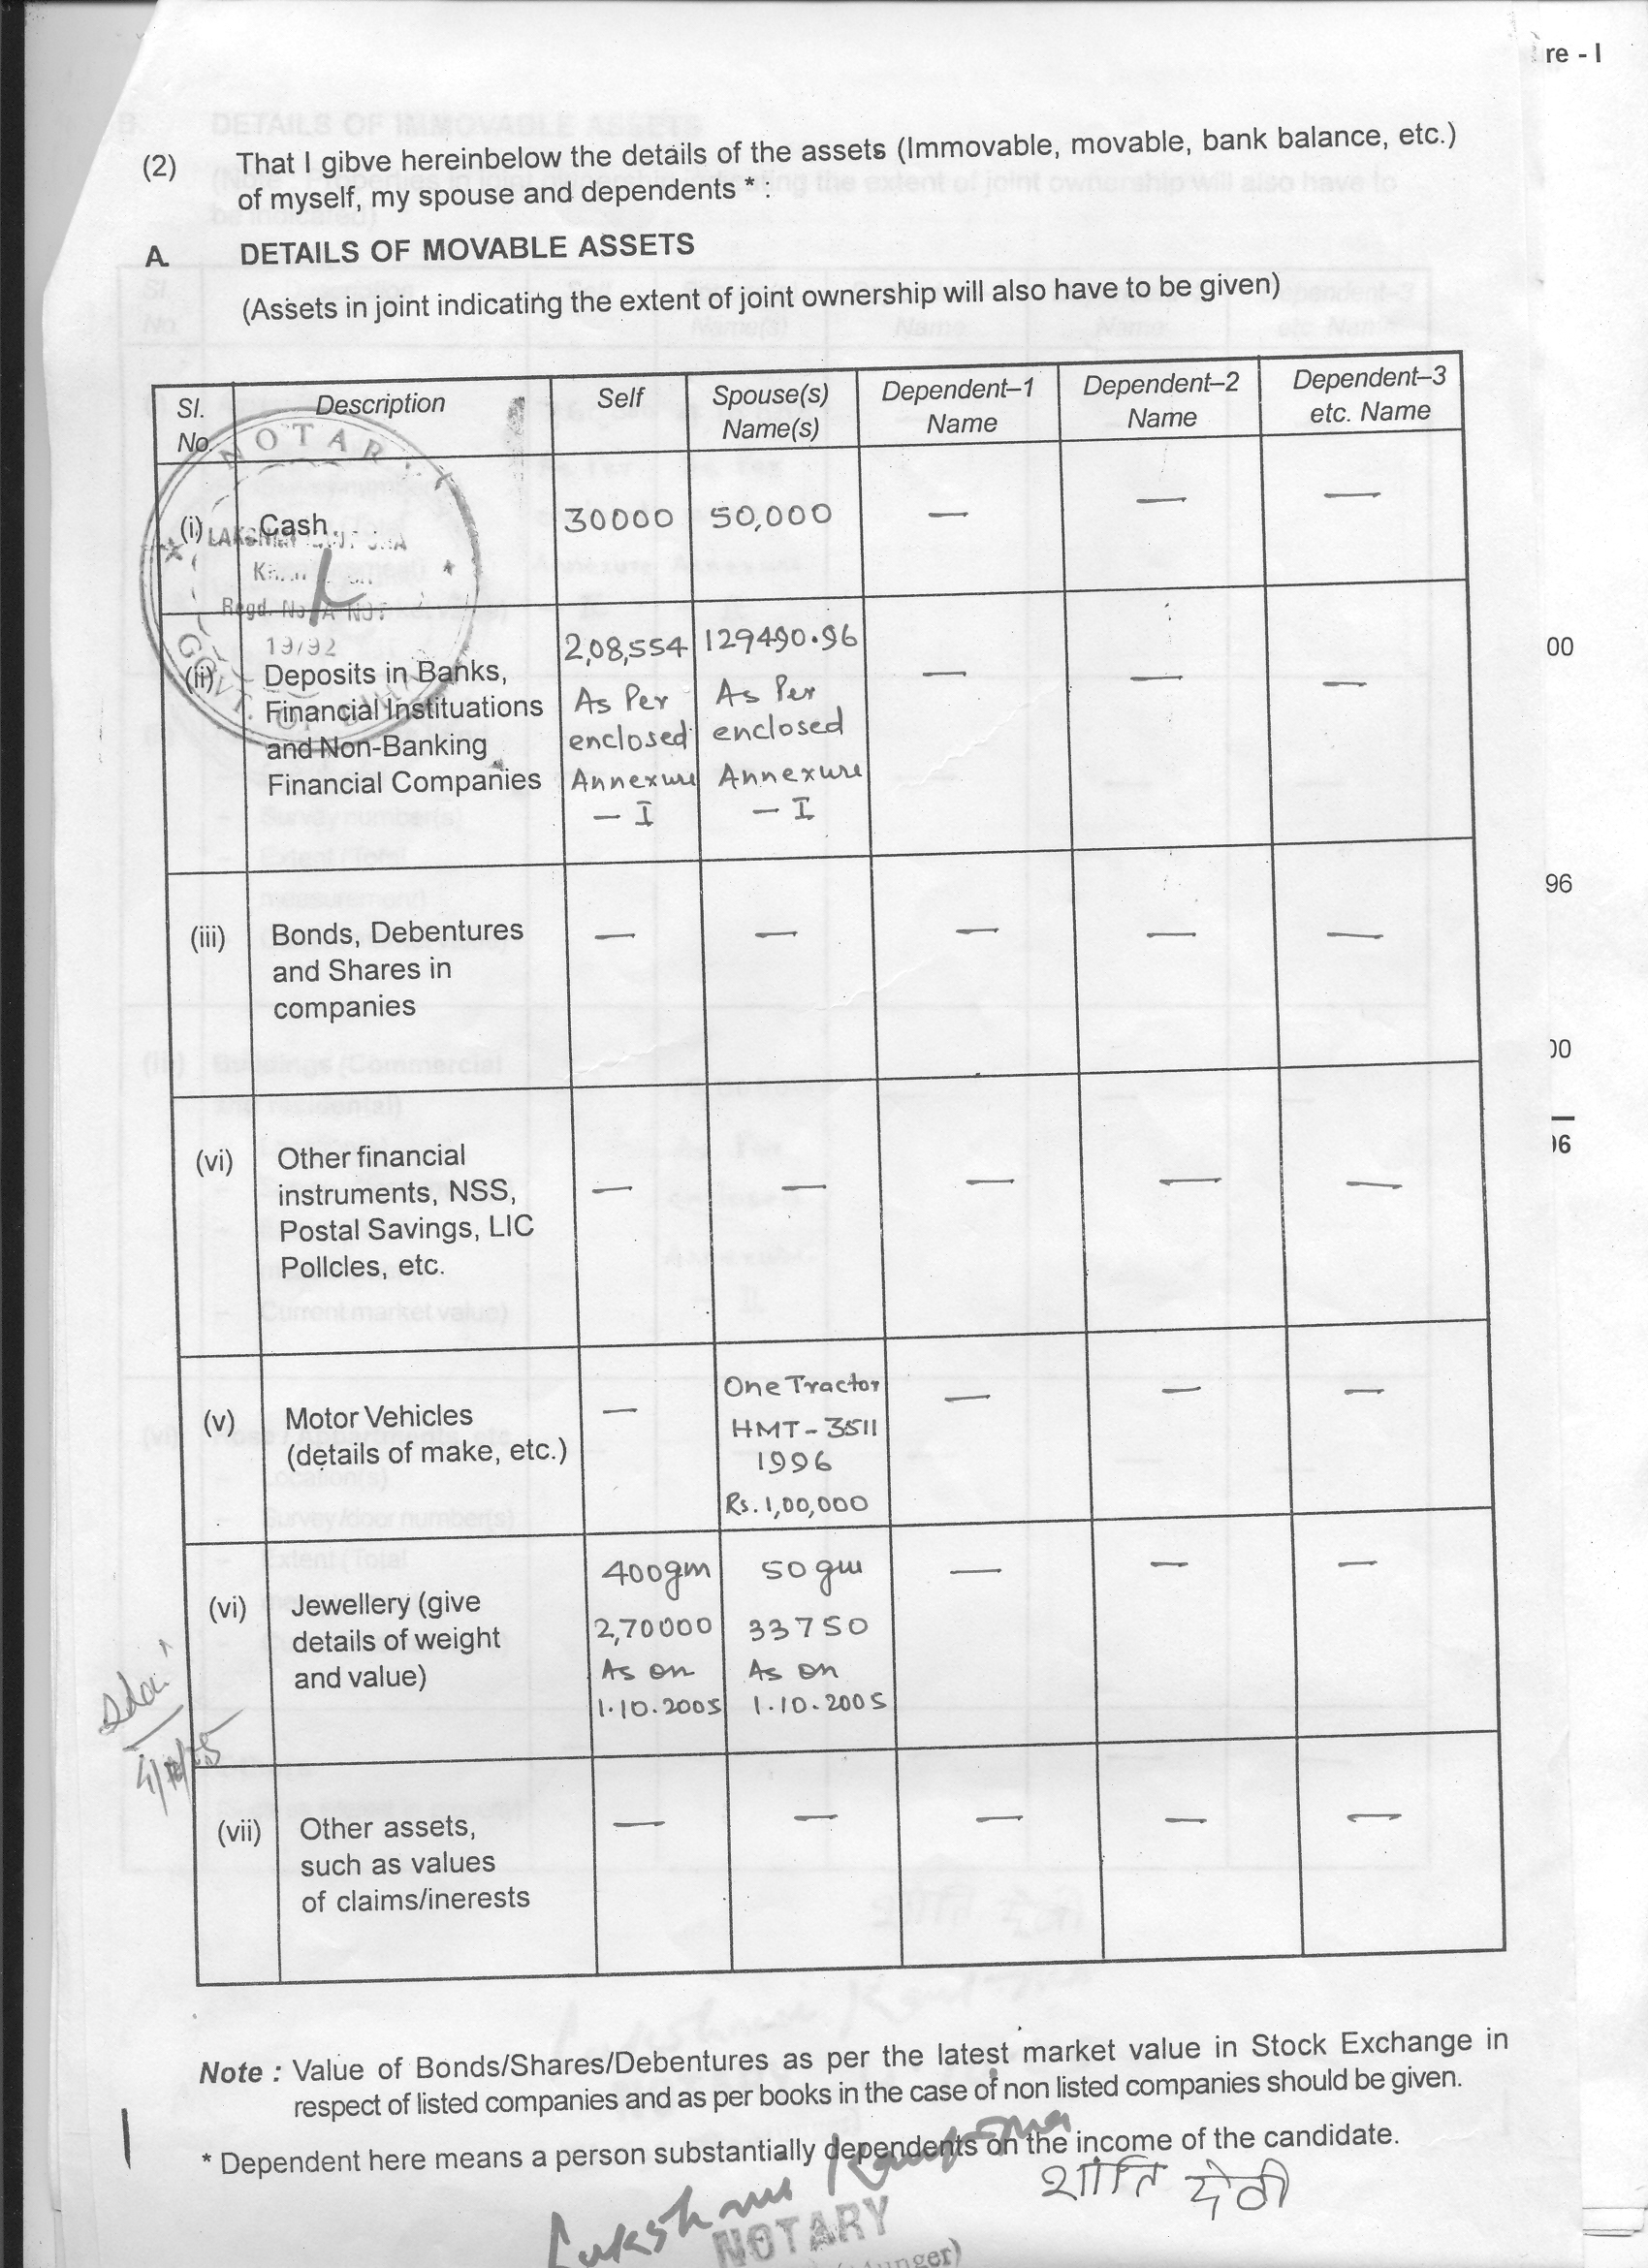 re - I
(2) That I gibve hereinbelow the details of the assets (Immovable, movable, bank balance, etc.)
of myself, my spouse and dependents * :
A. DETAILS OF MOVABLE ASSETS
(Assets in joint indicating the extent of joint ownership will also have to be given)
Sl. No. Description Self Spouse(s) Name(s) Dependent–1 Name Dependent–2 Name Dependent–3 etc. Name
NOTARY
(i) Cash 30000 50,000 — — —
Regd. No.
19/92
GOVT. OF
(ii) Deposits in Banks, 2,08,554 129490.96 — — —
Financial Instituations As Per As Per
and Non-Banking enclosed enclosed
Financial Companies Annexure Annexure
— I — I
00
96
(iii) Bonds, Debentures — — — — —
and Shares in
companies
00
96
(vi) Other financial — — — — —
instruments, NSS,
Postal Savings, LIC
Pollcles, etc.
(v) Motor Vehicles — One Tractor — — —
(details of make, etc.) HMT - 3511
1996
Rs. 1,00,000
(vi) Jewellery (give 400gm 50 gm — — —
details of weight 2,70000 33750
and value) As on As on
1.10.2005 1.10.2005
(vii) Other assets, — — — — —
such as values
of claims/inerests
Note : Value of Bonds/Shares/Debentures as per the latest market value in Stock Exchange in
respect of listed companies and as per books in the case of non listed companies should be given.
* Dependent here means a person substantially dependents on the income of the candidate.
शान्ति देवी
NOTARY